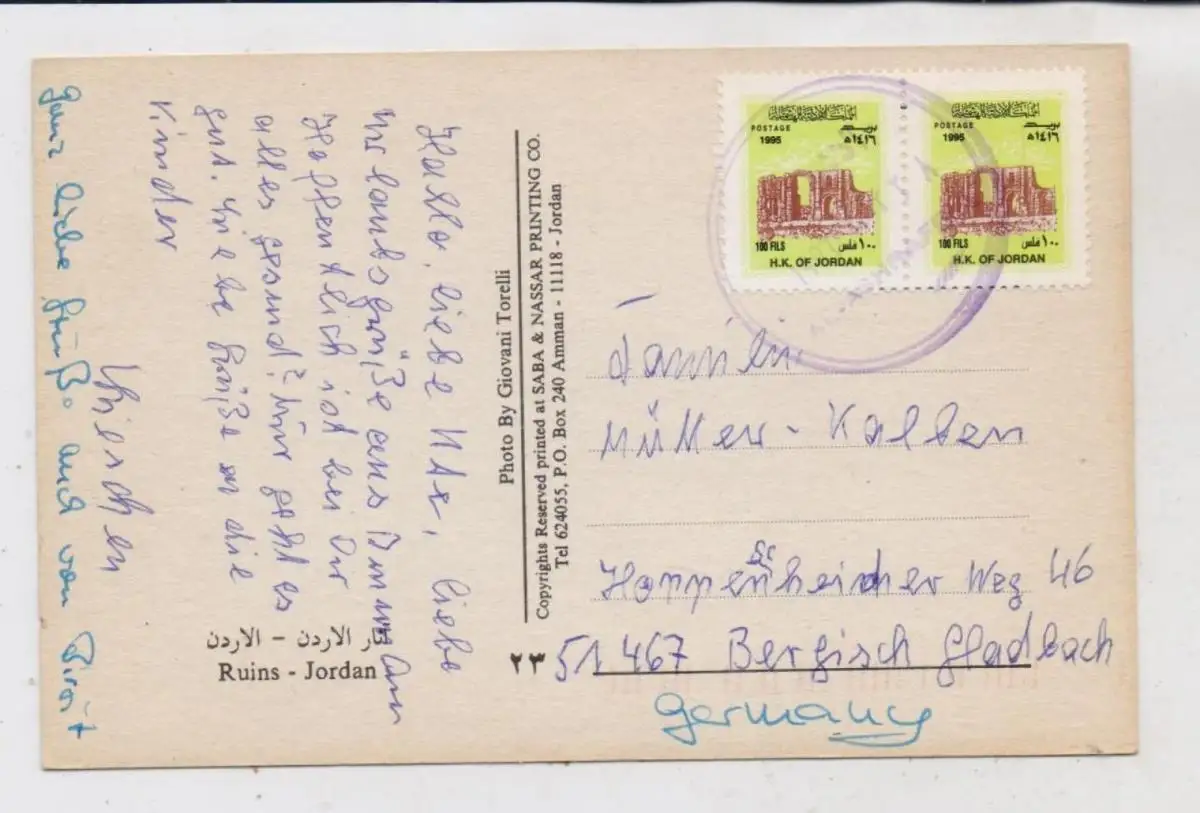 Hallo, liebe Ute, liebe
Urlaubsgrüße aus Amman
Hoffentlich ist bei Dir
alles gesund? Mir geht es
gut. Liebe Grüße an die
Kinder
ganz liebe Grüße auch von
Photo By Giovani Torelli
Copyrights Reserved printed at SABA & NASSAR PRINTING CO.
Tel 624055, P.O. Box 240 Amman - 11118 - Jordan
آثار الاردن - الاردن
Ruins - Jordan
٢٣
المملكة الأردنية الهاشمية
POSTAGE بريد
1995 ١٤١٦هـ
100 FILS ١٠٠ فلس
H.K. OF JORDAN
المملكة الأردنية الهاشمية
POSTAGE بريد
1995 ١٤١٦هـ
100 FILS ١٠٠ فلس
H.K. OF JORDAN
Müller-Kalben
Weg 46
51467 Bergisch Gladbach
Germany